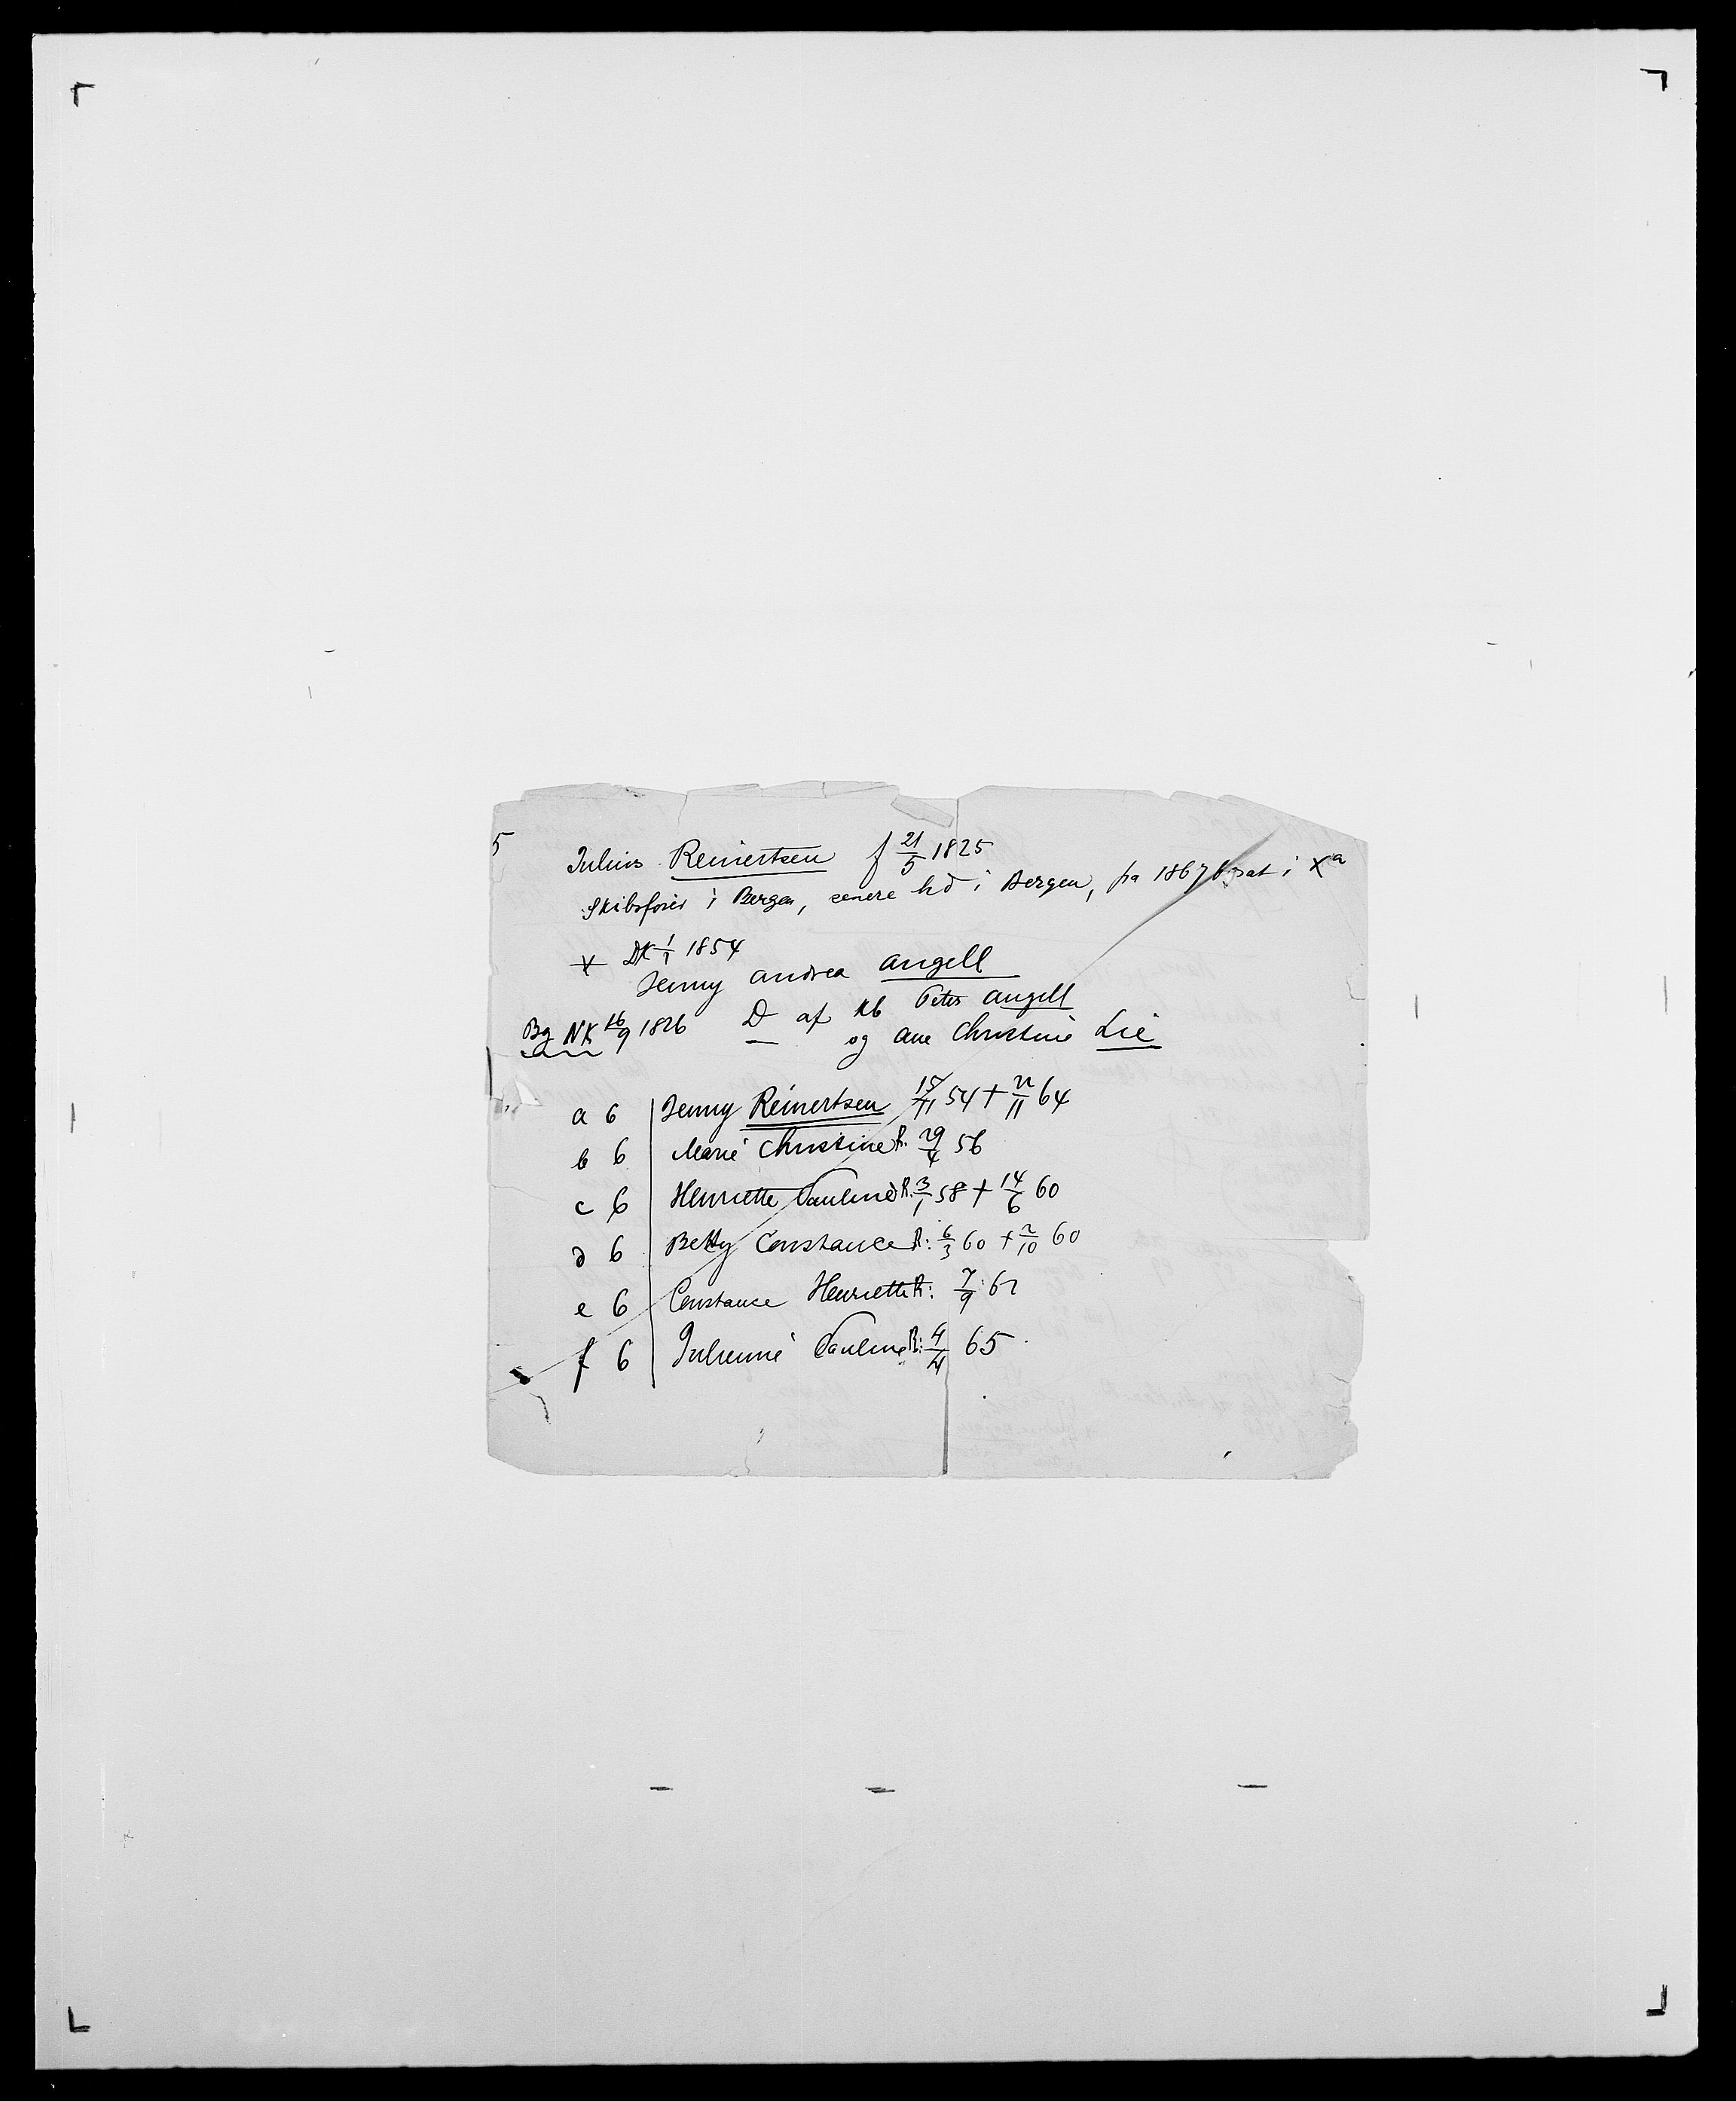 5 Julius Reinertsen f 21/5 1825
Skibsfører i Bergen, senere hd i Bergen, fra 1867 bosat i Xa
DK 1/1 1854
Jenny Andrea Angell
Bg NK 16/9 1826 D af kb Peter Angell
og Ane Christine Lie
a 6 Jenny Reinertsen 15/11 54 + 22/11 64
b 6 Marie Christine R. 29/4 56
c 6 Henriette Pauline R. 3/1 58 + 14/6 60
d 6 Betty Constance R: 6/3 60 + 2/10 60
e 6 Constance Henriette R: 7/9 62
f 6 Julienne Pauline R: 4/4 65